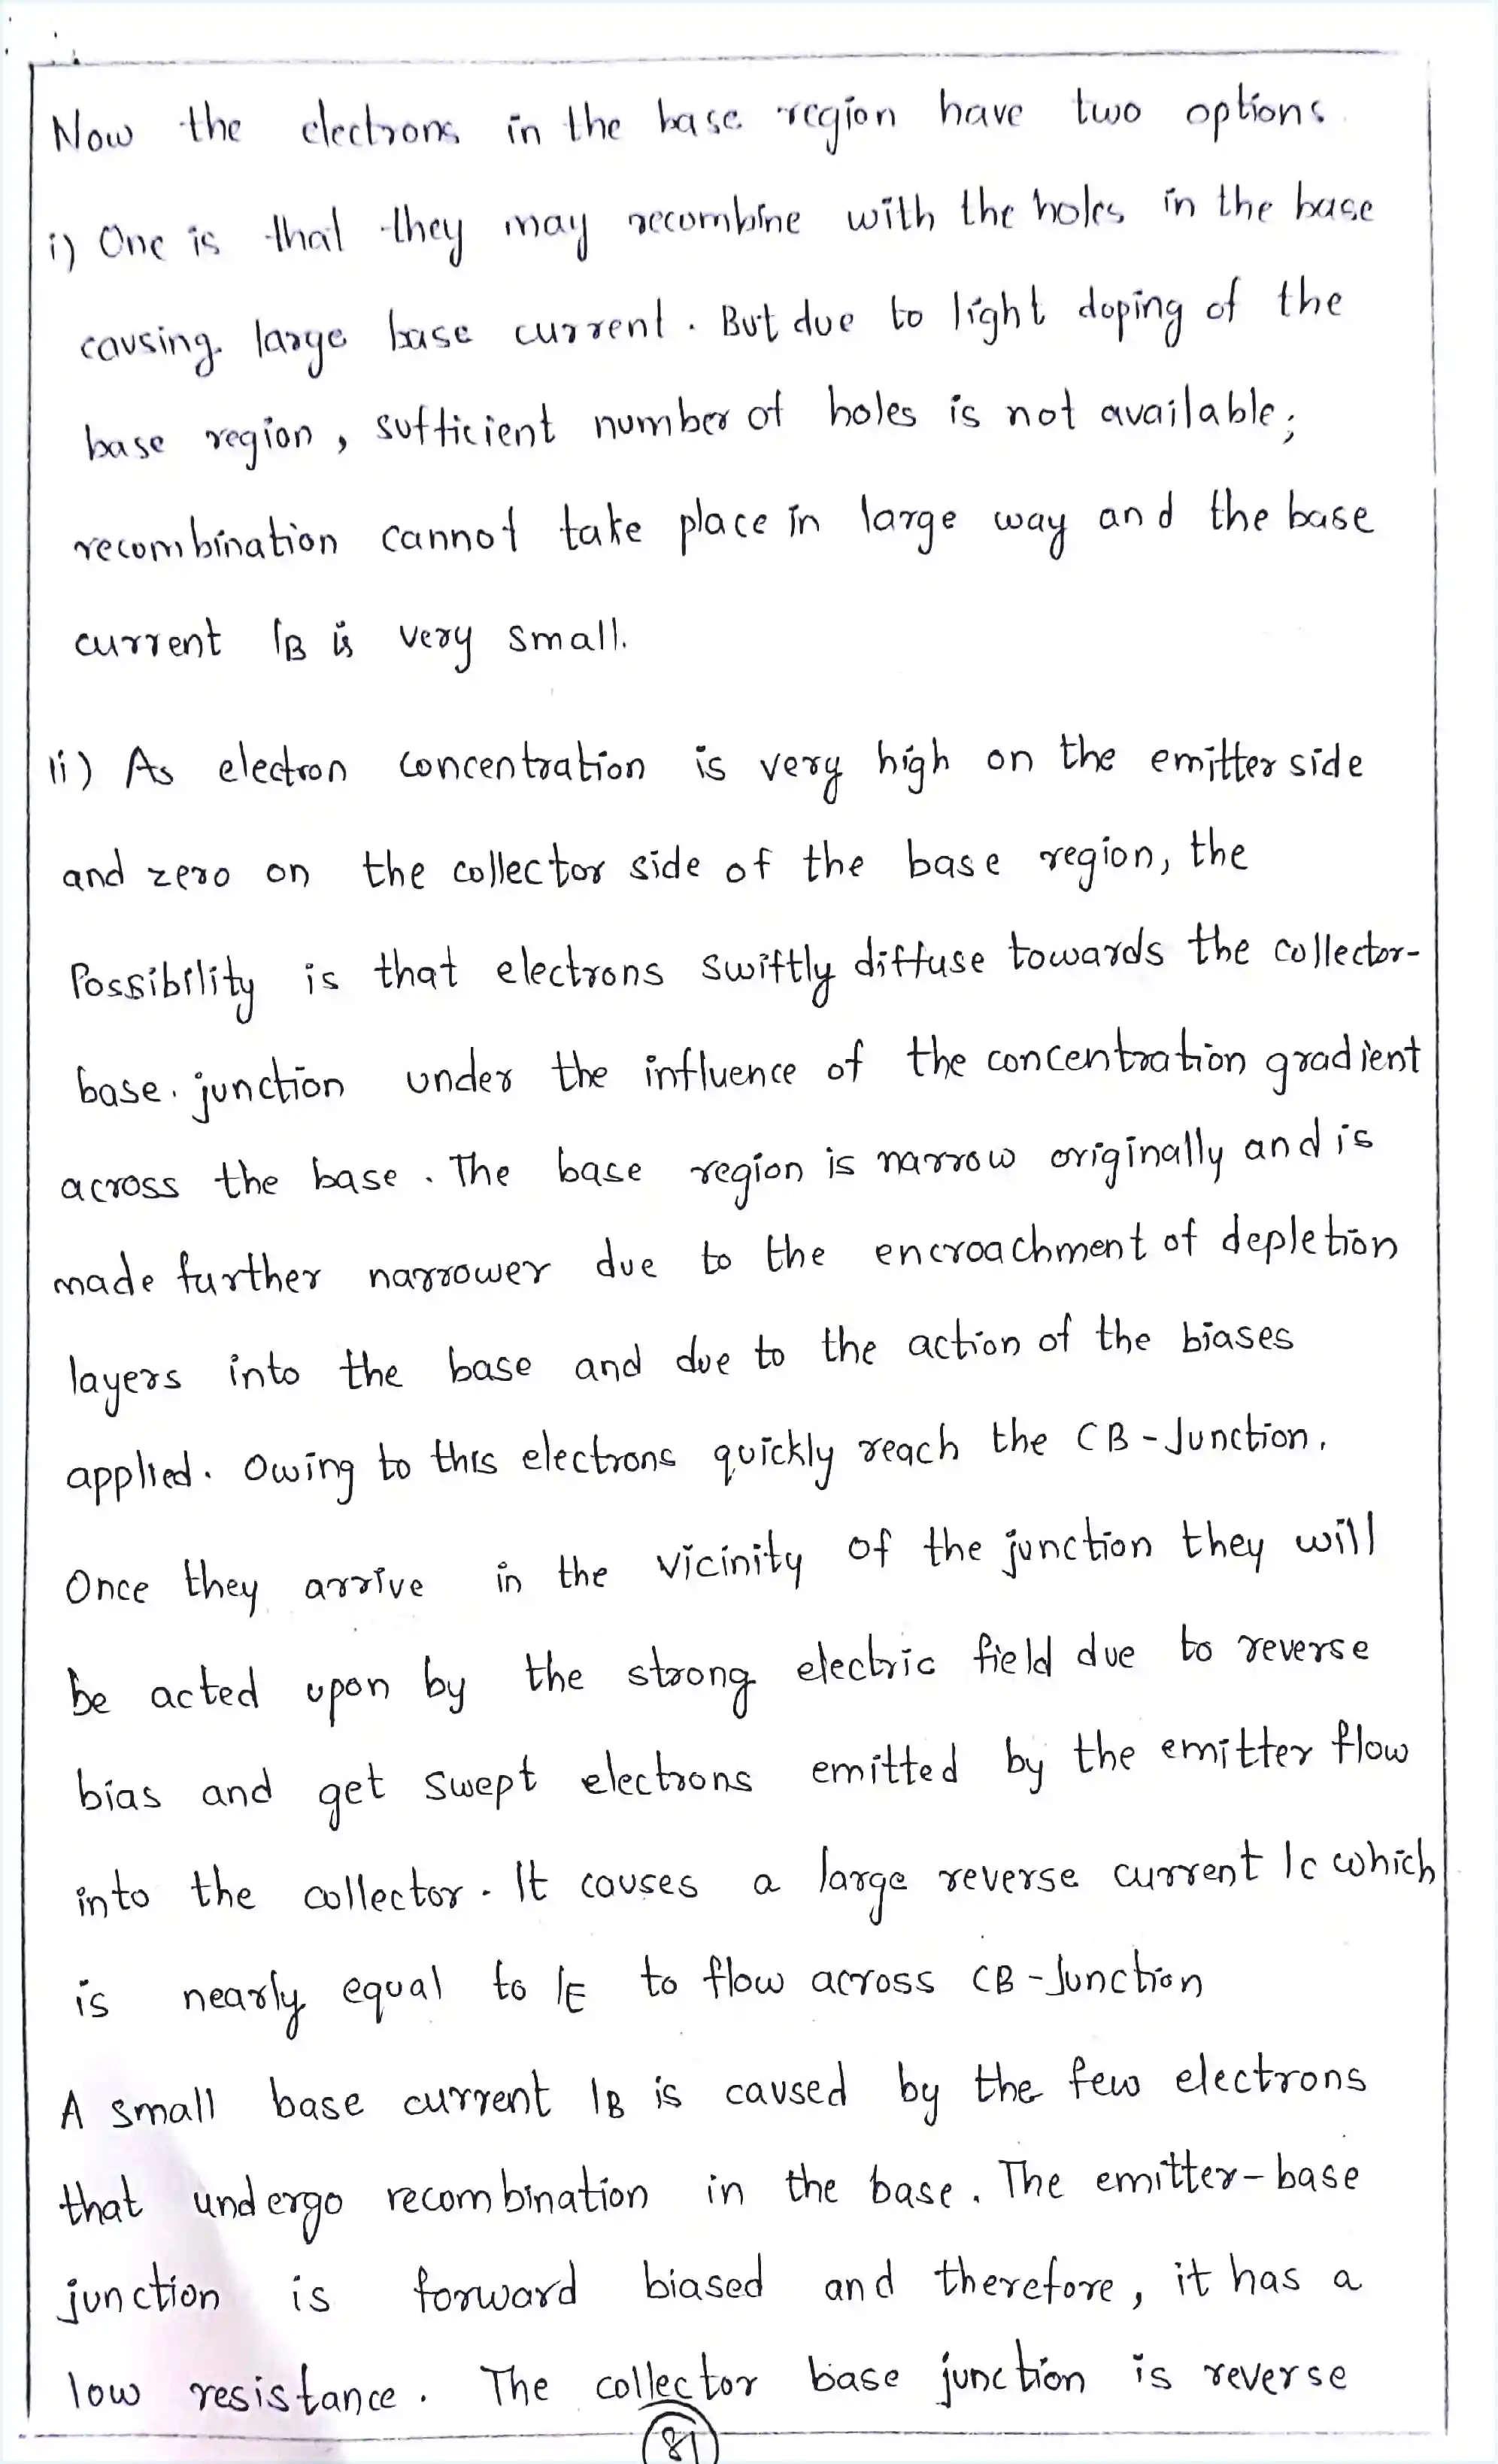 Now the electrons in the base region have two options.
i) One is that they may recombine with the holes in the base
causing large base current. But due to light doping of the
base region, sufficient number of holes is not available;
recombination cannot take place in large way and the base
current IB is very small.
ii) As electron concentration is very high on the emitter side
and zero on the collector side of the base region, the
Possibility is that electrons swiftly diffuse towards the collector-
base. junction under the influence of the concentration gradient
across the base. The base region is narrow originally and is
made further narrower due to the encroachment of depletion
layers into the base and due to the action of the biases
applied. Owing to this electrons quickly reach the CB-Junction.
Once they arrive in the vicinity of the junction they will
be acted upon by the strong electric field due to reverse
bias and get swept electrons emitted by the emitter flow
into the collector. It causes a large reverse current Ic which
is nearly equal to IE to flow across CB-Junction
A small base current IB is caused by the few electrons
that undergo recombination in the base. The emitter-base
junction is forward biased and therefore, it has a
low resistance. The collector base junction is reverse
81